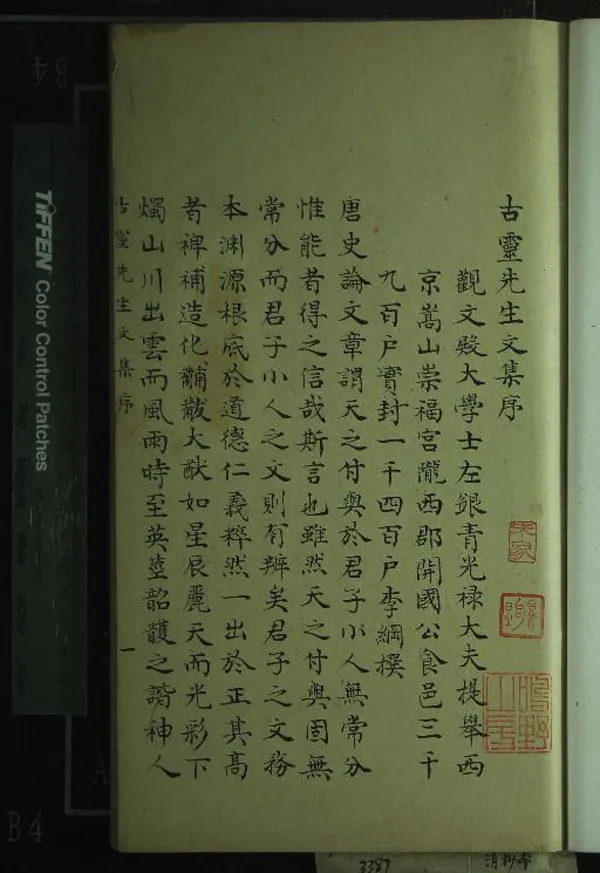 古靈先生文集序
觀文殿大學士左銀青光祿大夫提舉西
京嵩山崇福宮隴西郡開國公食邑三千
九百戶實封一千四百戶李綱撰
唐史論文章謂天之付與於君子小人無常分
惟能者得之信哉斯言也雖然天之付與固無
常分而君子小人之文則有辨矣君子之文務
本淵源根底於道德仁義粹然一出於正其高
者裨補造化黼黻大猷如星辰麗天而光彩下
燭山川出雲而風雨時至英莖韶頀之諧神人
古靈先生文集序
一
TIFFEN Color Control Patches
B4
3387
清抄本